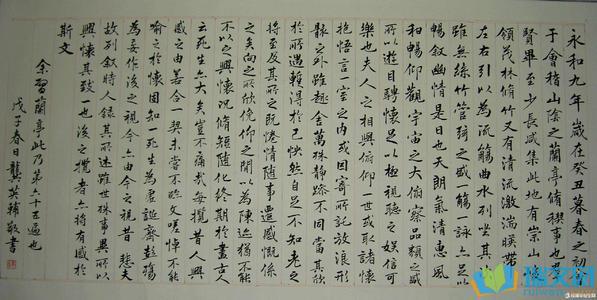 永和九年歲在癸丑暮春之初會
于會稽山陰之蘭亭脩稧事也羣
賢畢至少長咸集此地有崇山峻
領茂林脩竹又有清流激湍暎帶
左右引以為流觴曲水列坐其次
雖無絲竹管弦之盛一觴一詠亦足以
暢敘幽情是日也天朗氣清惠風
和暢仰觀宇宙之大俯察品類之盛
所以遊目騁懷足以極視聽之娛信可
樂也夫人之相與俯仰一世或取諸懷
抱悟言一室之內或因寄所託放浪形
骸之外雖趣舍萬殊靜躁不同當其欣
於所遇輒得於己怏然自足不知老之
將至及其所之既惓情隨事遷感慨係
之矣向之所欣俛仰之間以為陳迹猶不能
不以之興懷況脩短隨化終期於盡古人
云死生亦大矣豈不痛哉每攬昔人興
感之由若合一契未嘗不臨文嗟悼不能
喻之於懷固知一死生為虛誕齊彭殤
為妄作後之視今亦由今之視昔悲夫
故列敘時人錄其所述雖世殊事異所以
興懷其致一也後之攬者亦將有感於
斯文
余習蘭亭此乃第六十五遍也
戊子春日龔英輔敬書